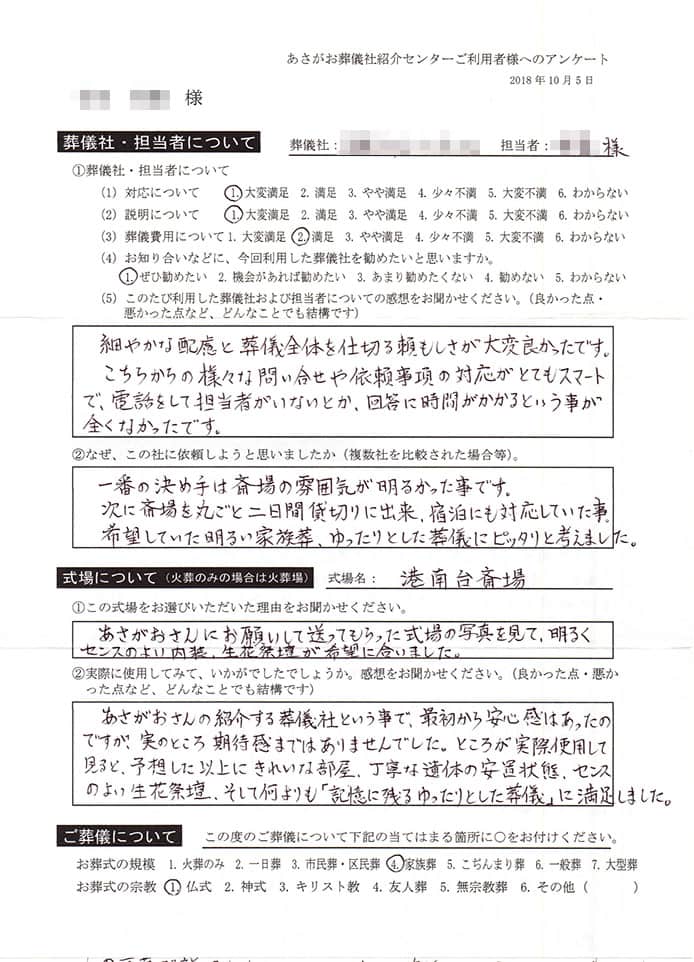 あさがお葬儀社紹介センターご利用者様へのアンケート
2018年10月5日
様
葬儀社・担当者について
葬儀社:
担当者:
様
①葬儀社・担当者について
(1) 対応について ①大変満足 2. 満足 3. やや満足 4. 少々不満 5. 大変不満 6. わからない
(2) 説明について ①大変満足 2. 満足 3. やや満足 4. 少々不満 5. 大変不満 6. わからない
(3) 葬儀費用について 1. 大変満足 ②満足 3. やや満足 4. 少々不満 5. 大変不満 6. わからない
(4) お知り合いなどに、今回利用した葬儀社を勧めたいと思いますか。
①ぜひ勧めたい 2. 機会があれば勧めたい 3. あまり勧めたくない 4. 勧めない 5. わからない
(5) このたび利用した葬儀社および担当者についての感想をお聞かせください。(良かった点・
悪かった点など、どんなことでも結構です)
細やかな配慮と葬儀全体を仕切る頼もしさが大変良かったです。
こちらからの様々な問い合せや依頼事項の対応がとてもスマート
で、電話をして担当者がいないとか、回答に時間がかかるという事が
全くなかったです。
②なぜ、この社に依頼しようと思いましたか(複数社を比較された場合等)。
一番の決め手は斎場の雰囲気が明るかった事です。
次に斎場を丸ごと二日間貸切りに出来、宿泊にも対応していた事。
希望していた明るい家族葬、ゆったりとした葬儀にピッタリと考えました。
式場について(火葬のみの場合は火葬場)
式場名: 港南台斎場
①この式場をお選びいただいた理由をお聞かせください。
あさがおさんにお願いして送ってもらった式場の写真を見て、明るく
センスのよい内装、生花祭壇が希望に合いました。
②実際に使用してみて、いかがでしたでしょうか。感想をお聞かせください。(良かった点・悪か
った点など、どんなことでも結構です)
あさがおさんの紹介する葬儀社という事で、最初から安心感はあったの
ですが、実のところ期待感まではありませんでした。ところが実際使用して
見ると、予想した以上にきれいな部屋、丁寧な遺体の安置状態、センス
のよい生花祭壇、そして何よりも「記憶に残るゆったりとした葬儀」に満足しました。
ご葬儀について
この度のご葬儀について下記の当てはまる箇所に○をお付けください。
お葬式の規模 1. 火葬のみ 2. 一日葬 3. 市民葬・区民葬 ④家族葬 5. こぢんまり葬 6. 一般葬 7. 大型葬
お葬式の宗教 ①仏式 2. 神式 3. キリスト教 4. 友人葬 5. 無宗教葬 6. その他( )